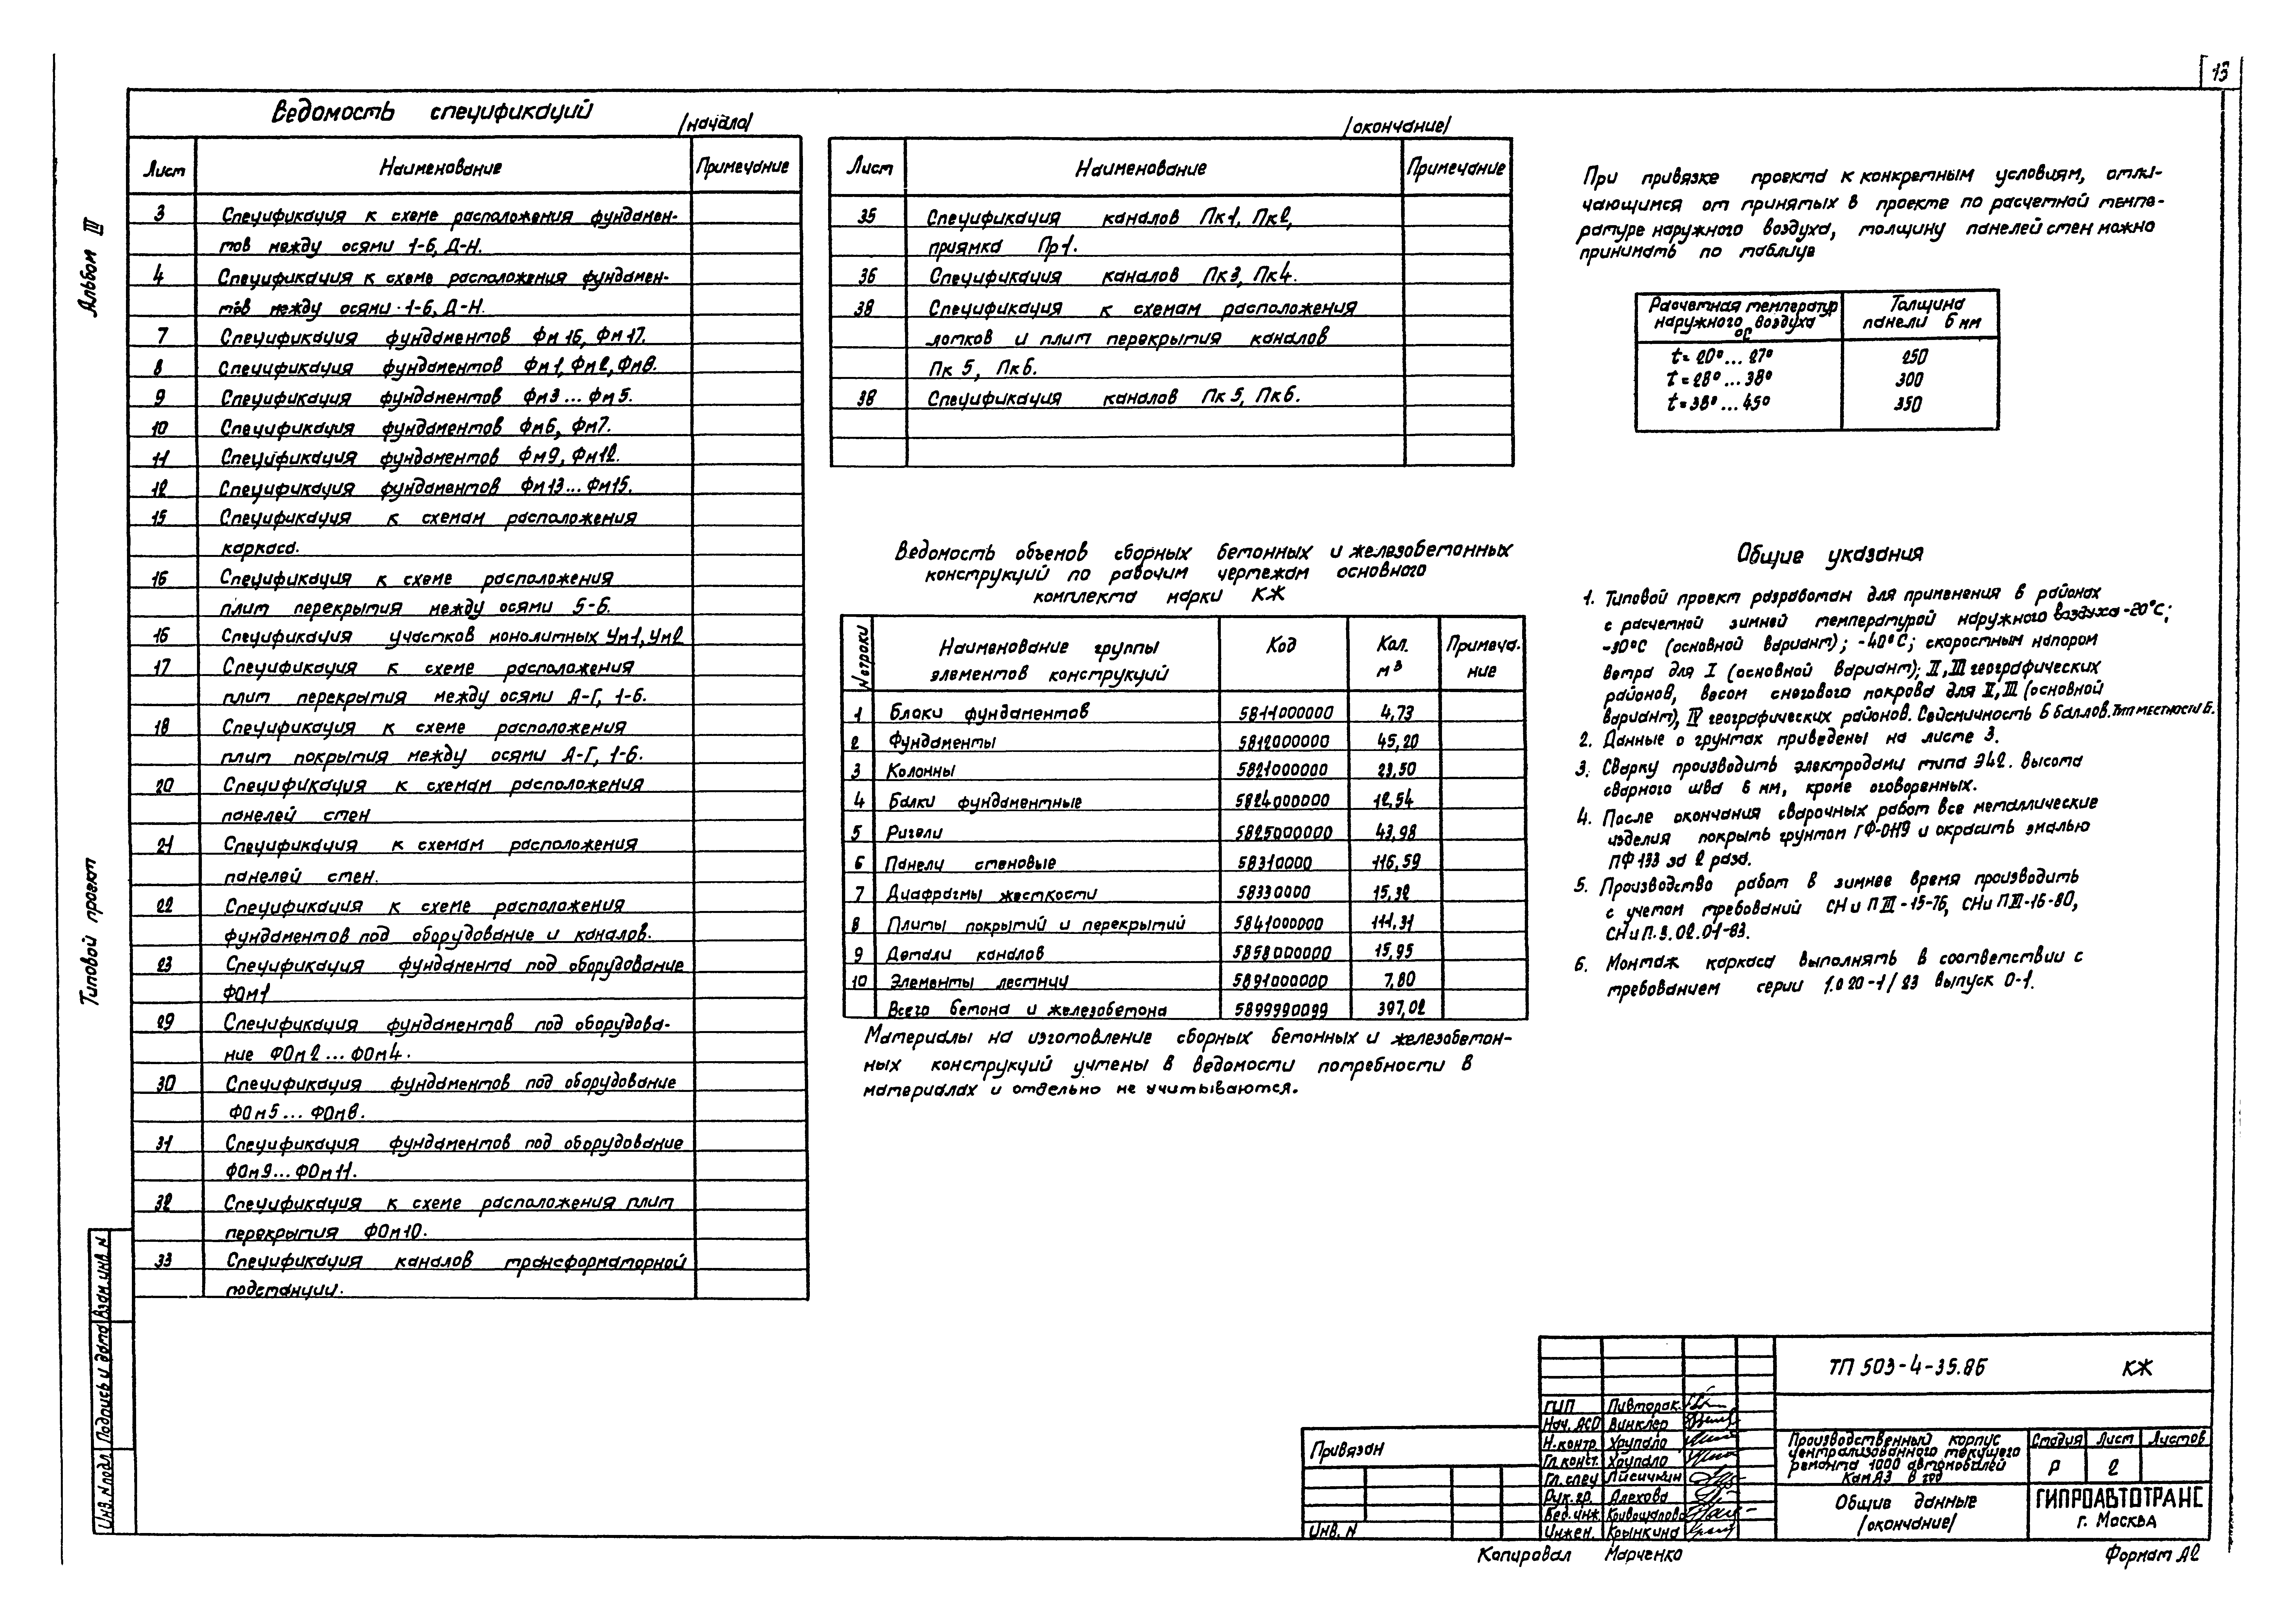 13
Альбом III
Типовой проект
Ведомость спецификаций
/начало/
Лист Наименование Примечание
3 Спецификация к схеме расположения фундамен-
тов между осями 1-6, Д-Н.
4 Спецификация к схеме расположения фундамен-
тов между осями 1-6, Д-Н.
7 Спецификация фундаментов Фм 16, Фм 17.
8 Спецификация фундаментов Фм1, Фм2, Фм8.
9 Спецификация фундаментов Фм3 ... Фм 5.
10 Спецификация фундаментов Фм6, Фм7.
11 Спецификация фундаментов Фм9, Фм12.
12 Спецификация фундаментов Фм13... Фм15.
15 Спецификация к схемам расположения
каркаса.
16 Спецификация к схеме расположения
плит перекрытия между осями 5-6.
16 Спецификация участков монолитных Ум1, Ум2
17 Спецификация к схеме расположения
плит перекрытия между осями А-Г, 1-6.
18 Спецификация к схеме расположения
плит покрытия между осями А-Г, 1-6.
20 Спецификация к схемам расположения
панелей стен
21 Спецификация к схемам расположения
панелей стен.
22 Спецификация к схеме расположения
фундаментов под оборудование и каналов.
23 Спецификация фундамента под оборудование
ФОм1
29 Спецификация фундаментов под оборудова-
ние ФОм2 ... ФОм4.
30 Спецификация фундаментов под оборудование
ФОм5 ... ФОм8.
31 Спецификация фундаментов под оборудование
ФОм9... ФОм11.
32 Спецификация к схеме расположения плит
перекрытия ФОм10.
33 Спецификация каналов трансформаторной
подстанции.
/окончание/
Лист Наименование Примечание
35 Спецификация каналов Пк1, Пк2,
приямка Пр1.
36 Спецификация каналов Пк3, Пк4.
38 Спецификация к схемам расположения
лотков и плит перекрытия каналов
Пк 5, Пк6.
38 Спецификация каналов Пк 5, Пк6.
Ведомость объемов сборных бетонных и железобетонных
конструкций по рабочим чертежам основного
комплекта марки КЖ
N строки Наименование группы элементов конструкций Код Кол. м³ Примеча-ние
1 Блоки фундаментов 5811000000 4,73
2 Фундаменты 5812000000 45,20
3 Колонны 5821000000 23,50
4 Балки фундаментные 5824000000 12,54
5 Ригели 5825000000 43,98
6 Панели стеновые 58310000 116,59
7 Диафрагмы жесткости 58330000 15,32
8 Плиты покрытий и перекрытий 5841000000 111,31
9 Детали каналов 5858000000 15,95
10 Элементы лестниц 5891000000 7,80
Всего бетона и железобетона 5899990099 397,02
Материалы на изготовление сборных бетонных и железобетон-
ных конструкций учтены в ведомости потребности в
материалах и отдельно не учитываются.
При привязке проекта к конкретным условиям, отли-
чающимся от принятых в проекте по расчетной темпе-
ратуре наружного воздуха, толщину панелей стен можно
принимать по таблице
Расчетная температур Толщина
наружного воздуха панели в мм
°С
t= 20°... 27° 250
t = 28° ... 38° 300
t = 38° ... 45° 350
Общие указания
1. Типовой проект разработан для применения в районах
с расчетной зимней температурой наружного воздуха -20°С;
-30°С (основной вариант); -40°С; скоростным напором
ветра для I (основной вариант); II, III географических
районов, весом снегового покрова для II, III (основной
вариант), IV географических районов. Сейсмичность 6 баллов. Тип местности Б.
2. Данные о грунтах приведены на листе 3.
3. Сварку производить электродами типа Э42. Высота
сварного шва 6 мм, кроме оговоренных.
4. После окончания сварочных работ все металлические
изделия покрыть грунтом ГФ-0119 и окрасить эмалью
ПФ 133 за 2 раза.
5. Производство работ в зимнее время производить
с учетом требований СН и П III - 15-76, СНи П III-16-80,
СН и П. 3. 02. 01-83.
6. Монтаж каркаса выполнять в соответствии с
требованием серии 1.020-1/83 выпуск 0-1.
Взам. инв. N
Подпись и дата
Инв. N подл.
Привязан
Инв. N
ГИП Пивторак
Нач. АСО Винклер
Н. контр. Хрупало
Гл. конст. Хрупало
Гл. спец Лисичкин
Рук. гр. Алехова
Вед. инж. Кривошапова
Инжен. Крынкина
ТП 503-4-35.86 КЖ
Производственный корпус
централизованного текущего
ремонта 1000 автомобилей
КамАЗ в год
Стадия Лист Листов
Р 2
Общие данные
/окончание/
ГИПРОАВТОТРАНС
г. Москва
Копировал Марченко
Формат А2